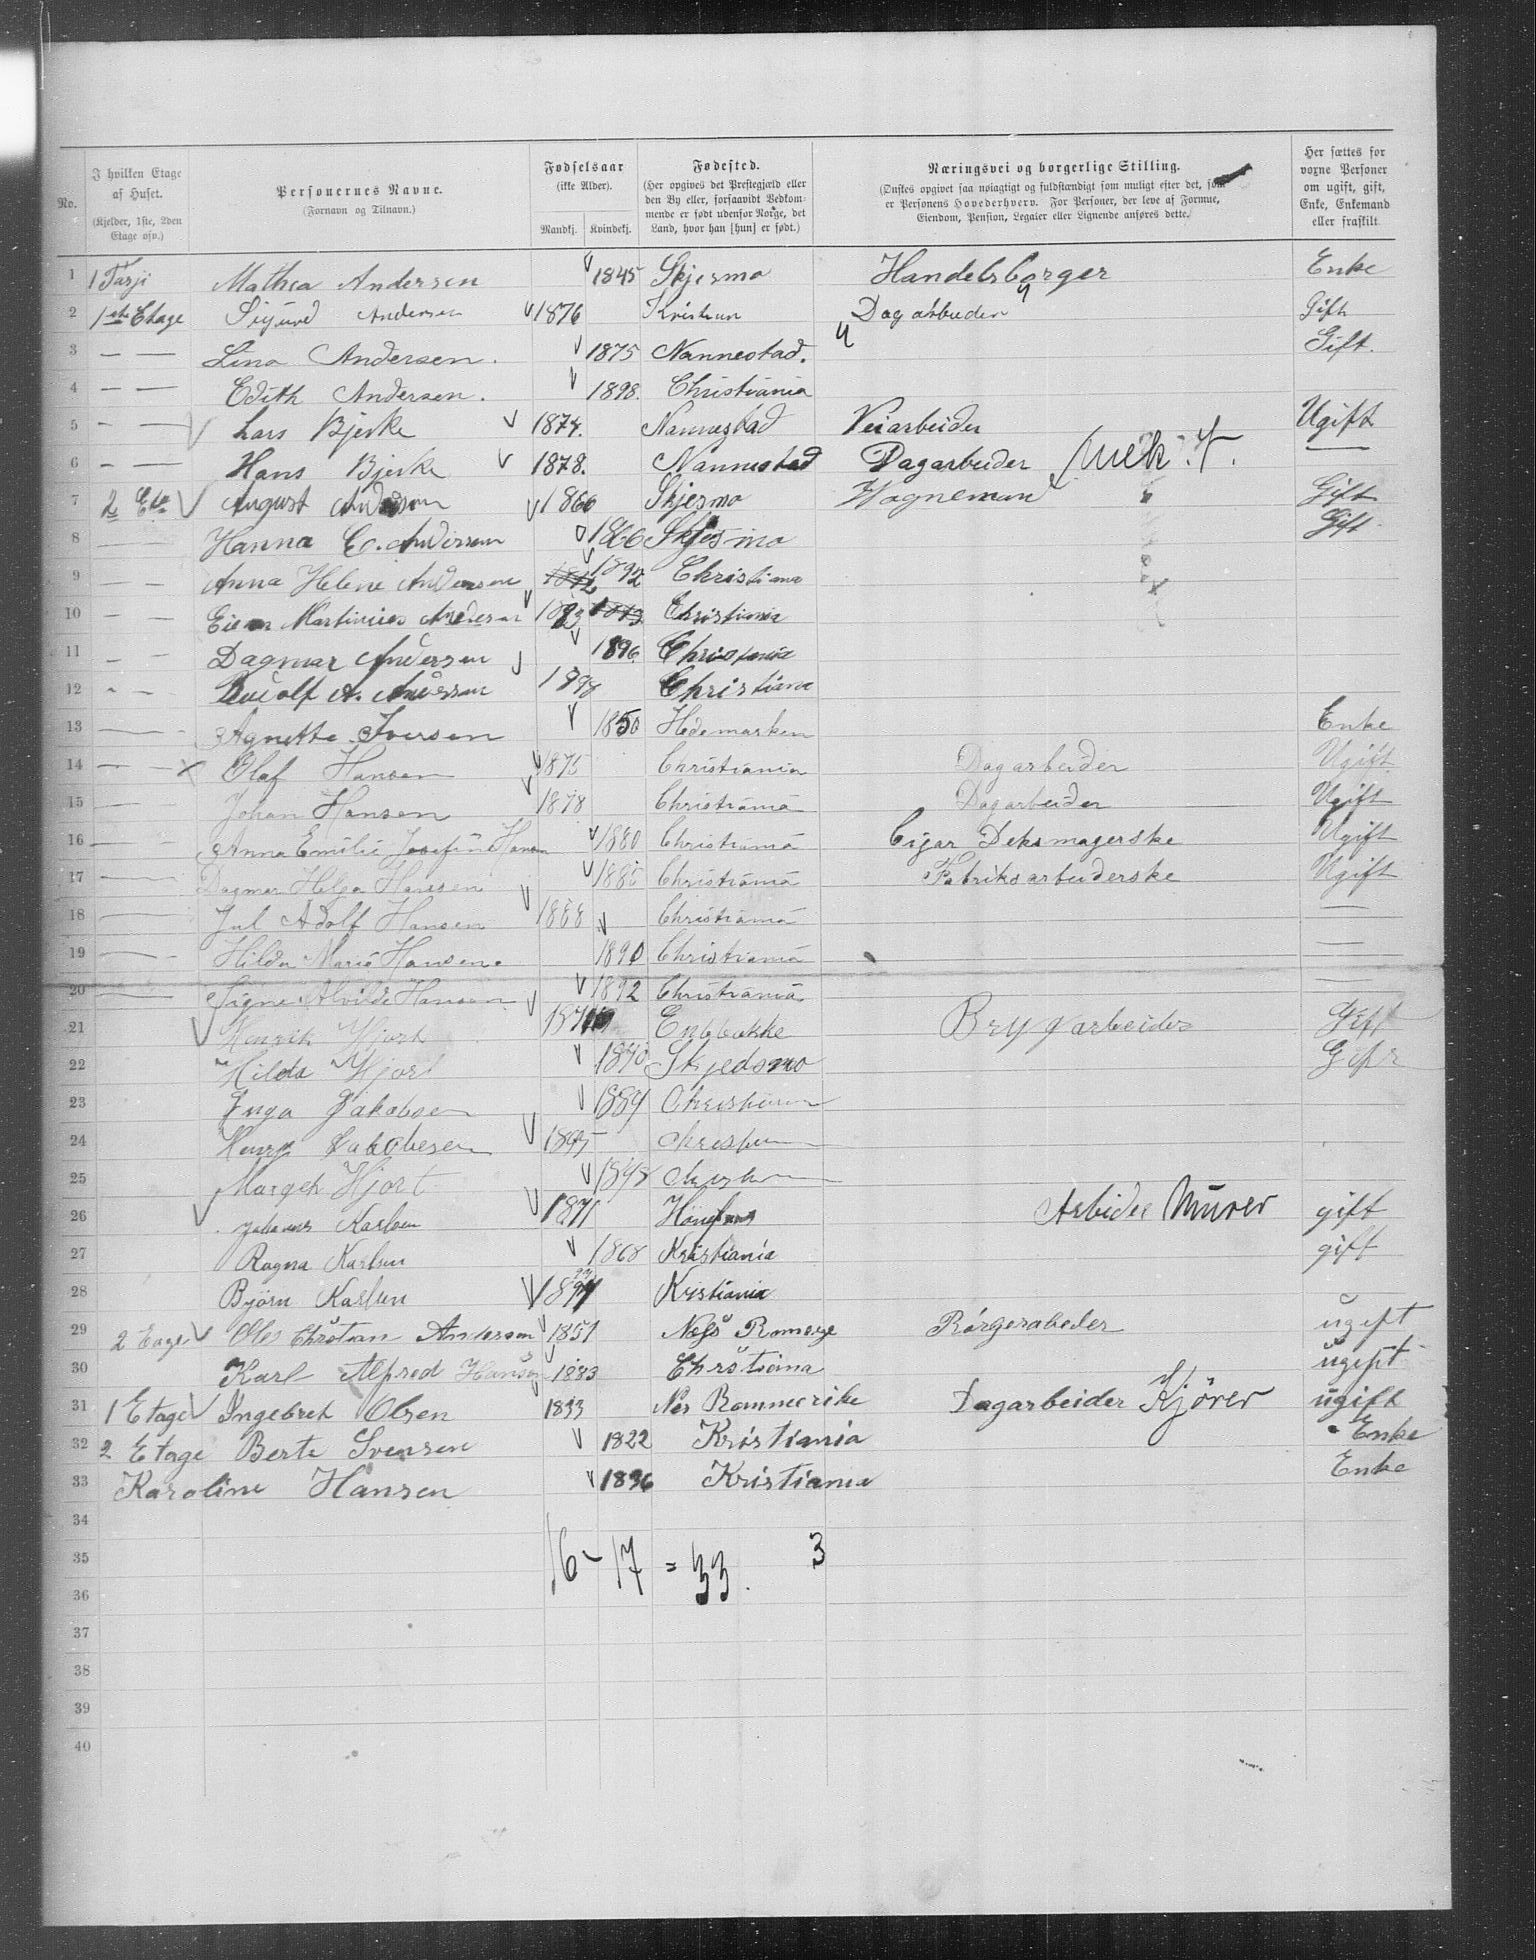 No. I hvilken Etage af Huset. (Kjelder, 1ste, 2den Etage osv.) Personernes Navne. (Fornavn og Tilnavn.) Fødselsaar (ikke Alder). Mandkj. Kvindekj. Fødested. (Her opgives det Prestegjæld eller den By eller, forsaavidt Vedkommende er født udenfor Norge, det Land, hvor han [hun] er født.) Næringsvei og borgerlige Stilling. (Ønskes opgivet saa nøiagtigt og fuldstændigt som muligt efter det, som er Personens Hovederhverv. For Personer, der leve af Formue, Eiendom, Pension, Legater eller Lignende anføres dette.) Her sættes for voxne Personer om ugift, gift, Enke, Enkemand eller fraskilt
1 Mathea Andersen 1845 Skjesmo Handelsborger Enke
2 1ste Etage Sigurd Andersen 1876 Kristian Dagarbeider Gift
3 — — Lina Andersen. 1875 Nannestad. Gift.
4 — — Edith Andersen. 1898. Christiania
5 — — Lars Bjerke 1874. Nannestad Veiarbeider Ugift
6 — — Hans Bjerke 1878. Nannestad Dagarbeider Mek. V. —
7 2 Eta August Andersen 1860 Skjesmo Wognemand Gift
8 — Hanna C. Andersen 1866 Skjesmo Gift
9 — — Anna Helene Andersen 1892 Christiana
10 — — Einar Martinius Andersen 1893 Christiania
11 — — Dagmar Andersen 1896 Christania
12 - - Rudolf A. Andersen 1898 Christiana
13 — — Agnette Iversen 1850 Hedemarken Enke
14 — — Olaf Hansen 1875 Christiania Dagarbeider Ugift
15 — Johan Hansen 1878 Christiania Dagarbeider Ugift
16 — Anna Emilie Josefin Hansen 1880 Christiania Cigar Deksmagerske Ugift
17 — Dagmar Helga Hansen 188 Christiania Fabriksarbeiderske Ugift
18 — Jul Adolf Hansen 1888 Christiania —
19 — Hilda Marie Hansen. 1890 Christiania —
20 — Signe Alvilde Hansen 1892 Christiania —
21 Henrik Hjort Enebakke Bryggarbeider Gift
22 Hilda Hjort 1870 Skjedsmo Gift
23 Inga Jakobsen 1889 Christian
24 Henry Jakobsen 1895
25 Margeh Hjort 1898
26 Johannes Karlsen 1871 Arbider Murer gift
27 Ragna Karlsen 1868 Kristiania gift
28 Bjørn Karlsen Kristiania
29 2 Eage Ole Christian Andersen 1851 Næs Romerge Rørgerabeder ugift
30 Karl Alfred Hansen 1883 Chrstiana ugift
31 1 Etage Ingebret Olsen 1833 Nes Rommerike Dagarbeider Kjörer ugift
32 2 Etage Berte Svensen 1822 Kristiania Enke
33 Karoline Hansen 1836 Kristiania Enke
34
35 16 - 17 = 33. 3
36
37
38
39
40